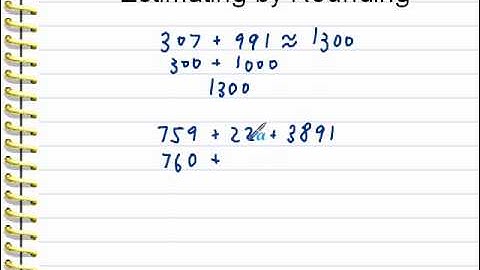 Estimating by Rounding
307 + 991 ≈ 1300
300 + 1000
1300
759 + + 3891
760 +